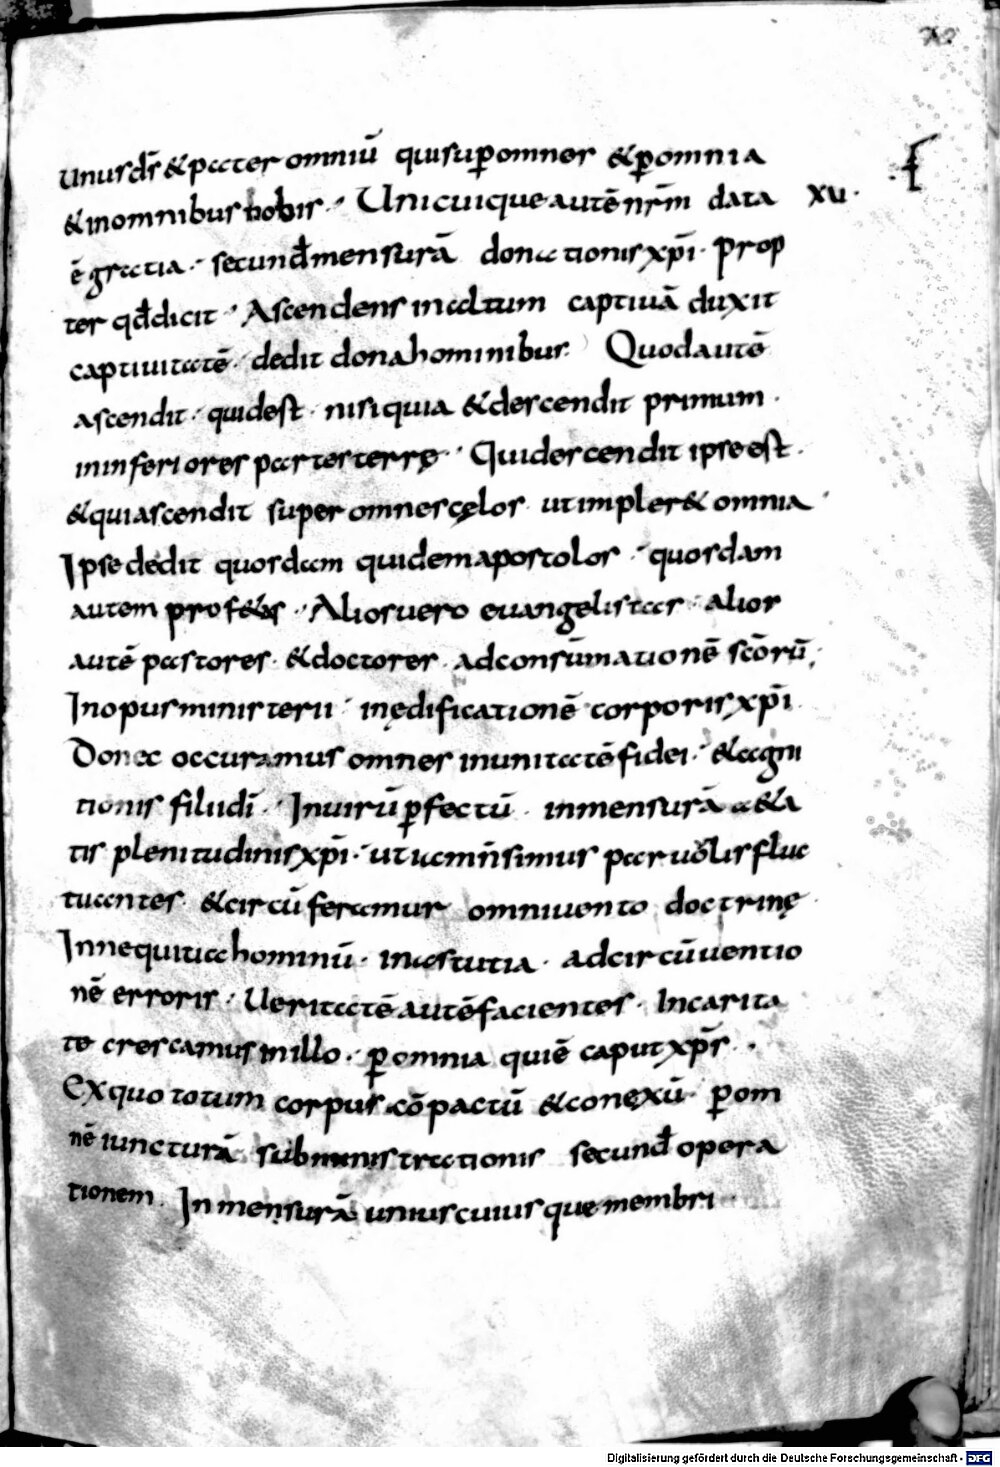 unus ds̄ & pater omniū qui sup̱ omnes & p̱ omnia
& in omnibus nobis · Unicuique autē nr̄m data xu ·
ē gratia · secund̄ mensurā donationis xp̄i · Prop
ter qd̄ dicit · Ascendens in altum captiuā duxit
captiuitatē · dedit dona hominibus · Quod autē
ascendit · quid est · nisi quia & descendit primum ·
in inferiores partes terrę · Qui descendit ipse est ·
& qui ascendit super omnes cęlos · ut impler& omnia ·
Ipse dedit quosdam quidem apostolos · quosdam
autem · Alios uero euangelistas · alios
autē pastores · & doctores · ad consūmationē sc̄orū ;
In opus ministerii · in ędificationē corporis xp̄i ·
Donec occuramus omnes in unitatē fidei · & agni
tionis filii dī · In uirū p̱fectū · in mensurā a&a
tis plenitudinis xp̄i · ut iam ń simus paruolis fluc
tuantes · & circūferamur omni uento doctrinę ·
In nequitia hominū · in astutia · ad circūuentio
nē erroris · Ueritatē autē facientes · In carita
te crescamus in illo · p̱ omnia qui ē caput xp̄s ·
Ex quo totum corpus cōpactū & conexū · p̱ om
nē iuncturā subministrationis secund̄ opera
tionem · In mensurā uniuscuiusque membri
Digitalisierung gefördert durch die Deutsche Forschungsgemeinschaft - DFG